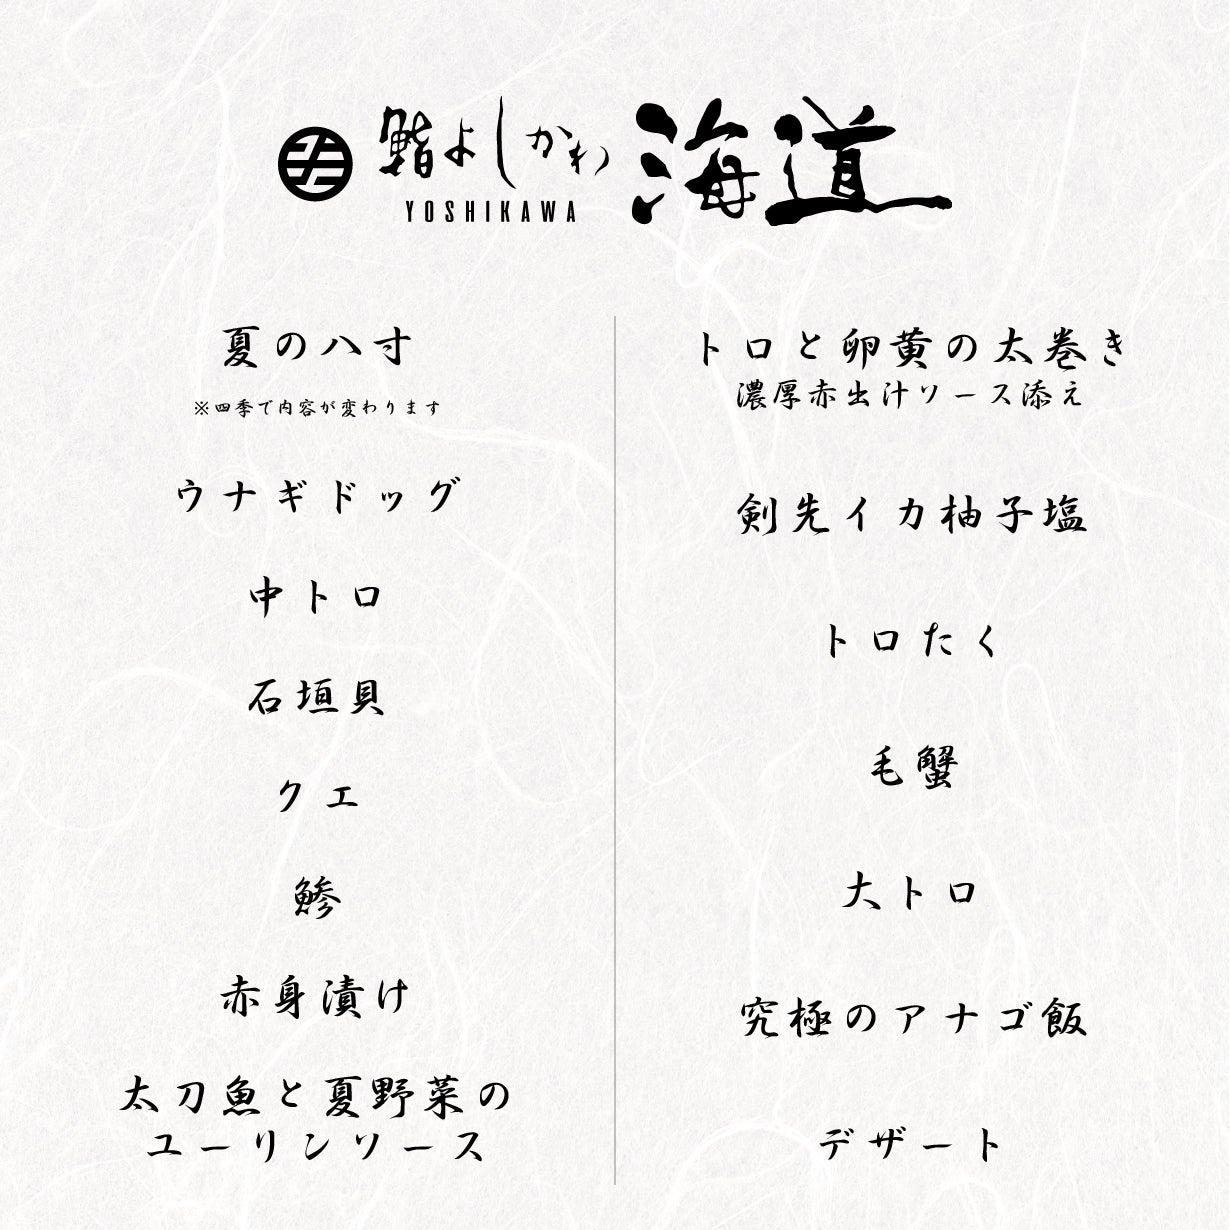 鮨よしかわ 海道
YOSHIKAWA
夏の八寸
※四季で内容が変わります
ウナギドッグ
中トロ
石垣貝
クエ
鯵
赤身漬け
太刀魚と夏野菜の
ユーリンソース
トロと卵黄の太巻き
濃厚赤出汁ソース添え
剣先イカ柚子塩
トロたく
毛蟹
大トロ
究極のアナゴ飯
デザート